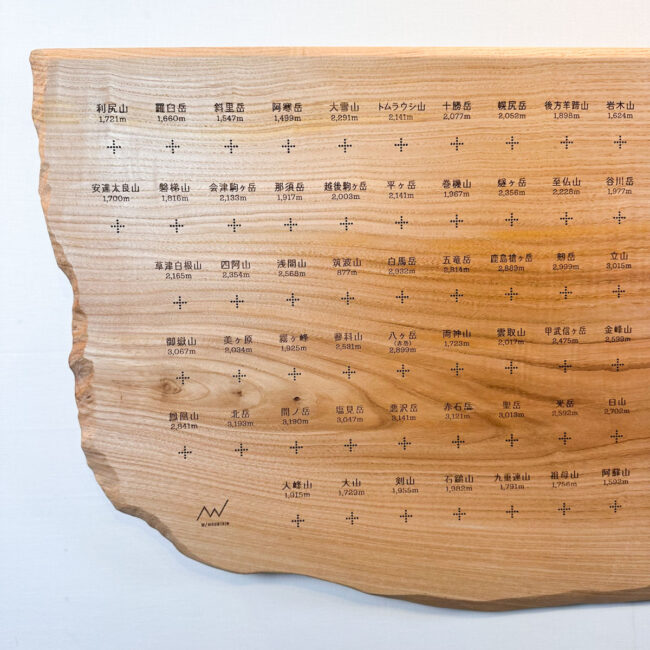 利尻山 羅臼岳 斜里岳 阿寒岳 大雪山 トムラウシ山 十勝岳 幌尻岳 後方羊蹄山 岩木山
1,721m 1,660m 1,547m 1,499m 2,291m 2,141m 2,077m 2,052m 1,898m 1,624m
安達太良山 磐梯山 会津駒ヶ岳 那須岳 越後駒ヶ岳 平ヶ岳 巻機山 燧ヶ岳 至仏山 谷川岳
1,700m 1,816m 2,133m 1,917m 2,003m 2,141m 1,967m 2,356m 2,228m 1,977m
草津白根山 四阿山 浅間山 筑波山 白馬岳 五竜岳 鹿島槍ヶ岳 剱岳 立山
2,165m 2,354m 2,568m 877m 2,932m 2,814m 2,889m 2,999m 3,015m
御嶽山 美ヶ原 霧ヶ峰 蓼科山 八ヶ岳 両神山 雲取山 甲武信ヶ岳 金峰山
(赤岳)
3,067m 2,034m 1,925m 2,531m 2,899m 1,723m 2,017m 2,475m 2,599m
鳳凰山 北岳 間ノ岳 塩見岳 悪沢岳 赤石岳 聖岳 光岳 白山
2,841m 3,193m 3,190m 3,047m 3,141m 3,121m 3,013m 2,592m 2,702m
大峰山 大山 剣山 石鎚山 九重連山 祖母山 阿蘇山
1,915m 1,729m 1,955m 1,982m 1,791m 1,756m 1,592m
W/MOUNTAIN